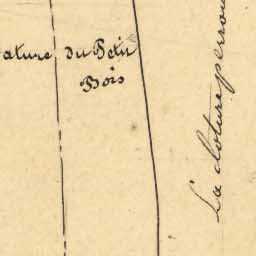 ature du Petit
Bois
La cloture perrou